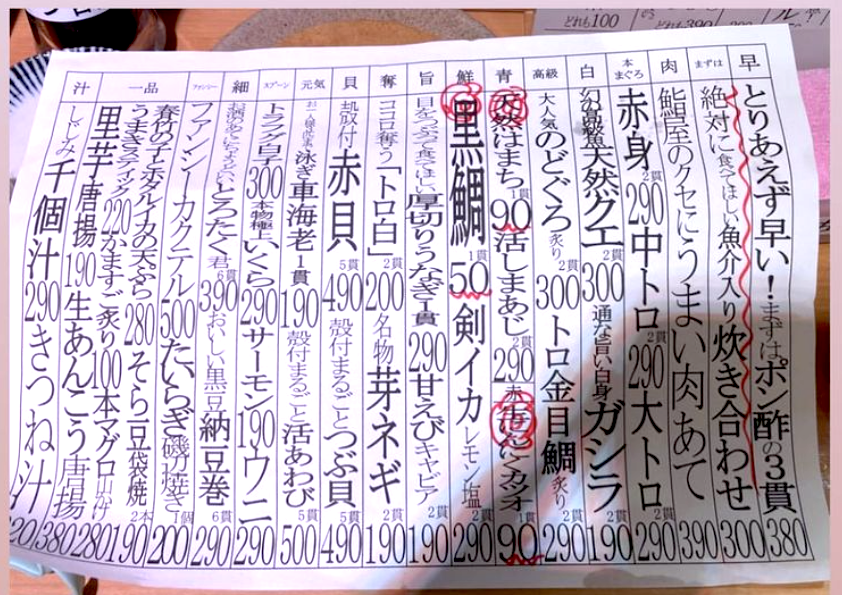 どれも100
どれも390
早 とりあえず早い！まずはポン酢の3貫 380
まずは 絶対に食べてほしい魚介入り炊き合わせ 300
肉 鮨屋のクセにうまい肉あて 390
本まぐろ 赤身 2貫 290 中トロ 2貫 290 大トロ 2貫 290
白 幻の高級魚天然グエ 2貫 300 通な旨い白身ガシラ 2貫 190
高級 大人気のどぐろ炙り 2貫 300 トロ金目鯛炙り 2貫 290
青 天然はまち 1貫 90 活しまあじ 2貫 290 赤生にんにくカツオ 90
鮮 黒鯛 1貫 50 剣イカレモン塩 2貫 290
旨 目をつぶって食べてほしい厚切りうなぎ1貫 290 甘えびキャビア 2貫 190
奪 ココロ奪う「トロ白」 2貫 200 名物芽ネギ 2貫 190
貝 殻付赤貝 5貫 490 殻付まるごとつぶ貝 5貫 490
元気 お一人様1貫まで泳ぎ車海老1貫 190 殻付まるごと活あわび 5貫 500
スプーン トラフグ白子 300 本物極上いくら 290 サーモン 190 ウニ 290
細 お酒のあてにちょうどいいとろたく君 6貫 390 おいしい黒豆納豆巻 6貫 290
ファンシー ファンシーカクテル 500 たいらぎ磯辺焼き 1個 200
一品 春竹の子とホタルイカの天ぷら 280 そら豆袋焼 190
うまきスティック 220 かますご炙り 100 本マグロ山かけ 2本
里芋唐揚 190 生あんこう唐揚 280
汁 しじみ千個汁 290 きつね汁 380